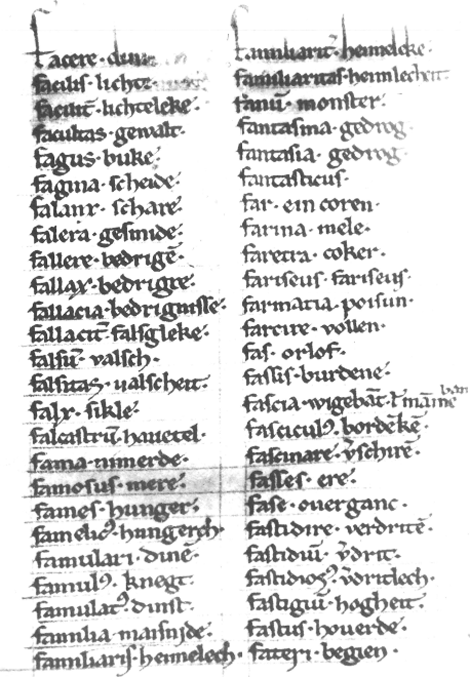 facere · dun
facilis · lichte
facilit̄ · lichteleke ·
facultas · gewalt ·
fagus · buke ·
fagina · scheide ·
falanx · schare ·
falera · gesmide ·
fallere · bedrigē ·
fallax · bedrigre ·
fallacia · bedrignisse ·
fallacit̄ · falsgleke ·
falsū · valsch ·
falsitas · ualscheit ·
falx · sikle ·
falcastrū · hauetel ·
fama · nimerde ·
famosus · mere ·
fames · hunger ·
famelicꝰ · hungerch ·
famulari · dinē ·
famulꝰ · knegt ·
famulatꝰ · dinst ·
familia · maisnide ·
familiaris · heimelech ·
familiarit̄ · heimelcke ·
familiaritas · heimlecheit ·
fanū · monster ·
fantasma · gedrog ·
fantasia · gedrog ·
fantasticus ·
far · ein coren ·
farina · mele ·
faretra · coker ·
fariseus · fariseus ·
farmatia · poisun ·
farcire · vollen ·
fas · orlof ·
fassis · burdene ·
fascia · wigebāt ·
fasciculꝰ · bordēkē ·
fascinare · v̄schirē ·
fasses · ere ·
fase · ouerganc ·
fastidire · verdritē ·
fastidiū · v̄drit ·
fastidiosꝰ · v̄dritlech ·
fastigiū · hogheit ·
fastus · houerde ·
fateri · begien ·